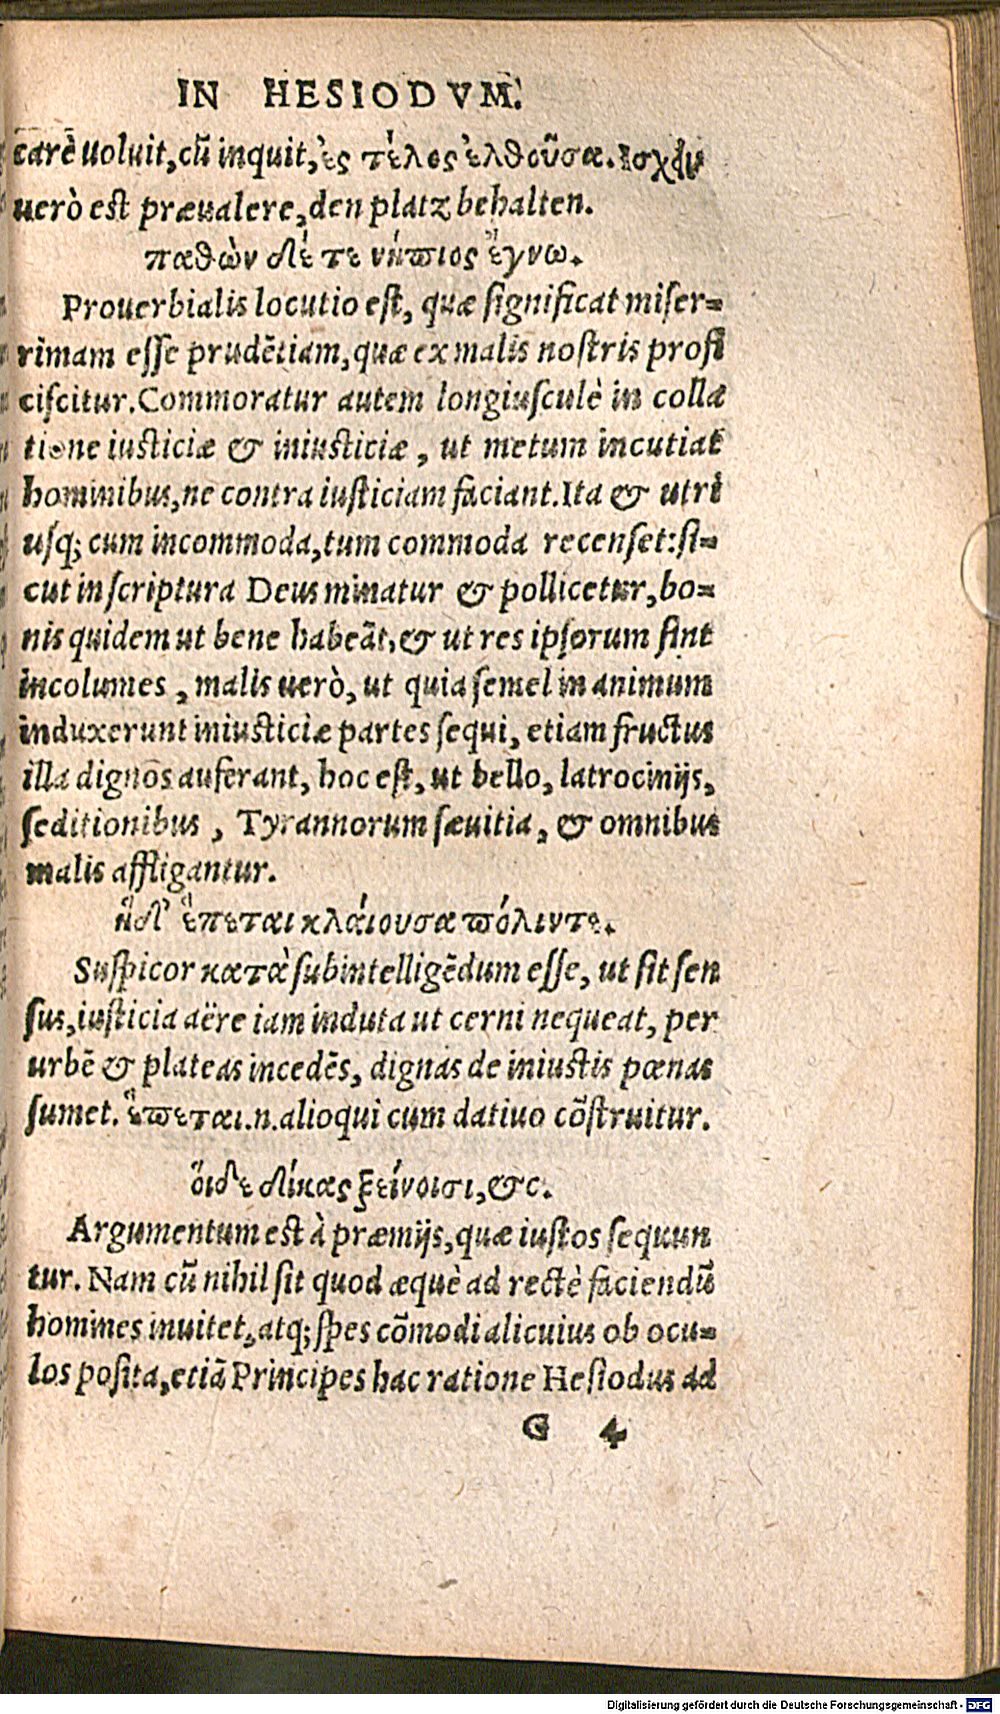 IN HESIODVM.
carē uoluit, cū inquit, ἐς τέλος ἐλθοῦσα. Ισχειν
uerò est præualere, den platz behalten.
παθὼν δέ τε νήπιος ἔγνω.
Prouerbialis locutio est, quæ significat miser-
rimam esse prudētiam, quæ ex malis nostris profi
ciscitur. Commoratur autem longiusculè in colla
tione iusticiæ & iniusticiæ, ut metum incutiat
hominibus, ne contra iusticiam faciant. Ita & utri
usq; cum incommoda, tum commoda recenset: si-
cut in scriptura Deus minatur & pollicetur, bo-
nis quidem ut bene habeāt, & ut res ipsorum sint
incolumes, malis uerò, ut quia semel in animum
induxerunt iniusticiæ partes sequi, etiam fructus
illa dignos auferant, hoc est, ut bello, latrocinijs,
seditionibus, Tyrannorum sæuitia, & omnibus
malis affligantur.
ἡδ' ἕπεται κλάιουσα πόλιντε.
Suspicor κατὰ subintelligēdum esse, ut sit sen
sus, iusticia aëre iam induta ut cerni nequeat, per
urbē & plateas incedēs, dignas de iniustis pœnas
sumet. ἕπεται. n. alioqui cum datiuo cōstruitur.
ὅιδε δίκας ξείνοισι, &c.
Argumentum est à præmijs, quæ iustos sequun
tur. Nam cū nihil sit quod æquè ad rectè faciendū
homines inuitet, atq; spes cōmodi alicuius ob ocu-
los posita, etiā Principes hac ratione Hesiodus ad
G 4
Digitalisierung gefördert durch die Deutsche Forschungsgemeinschaft - DFG